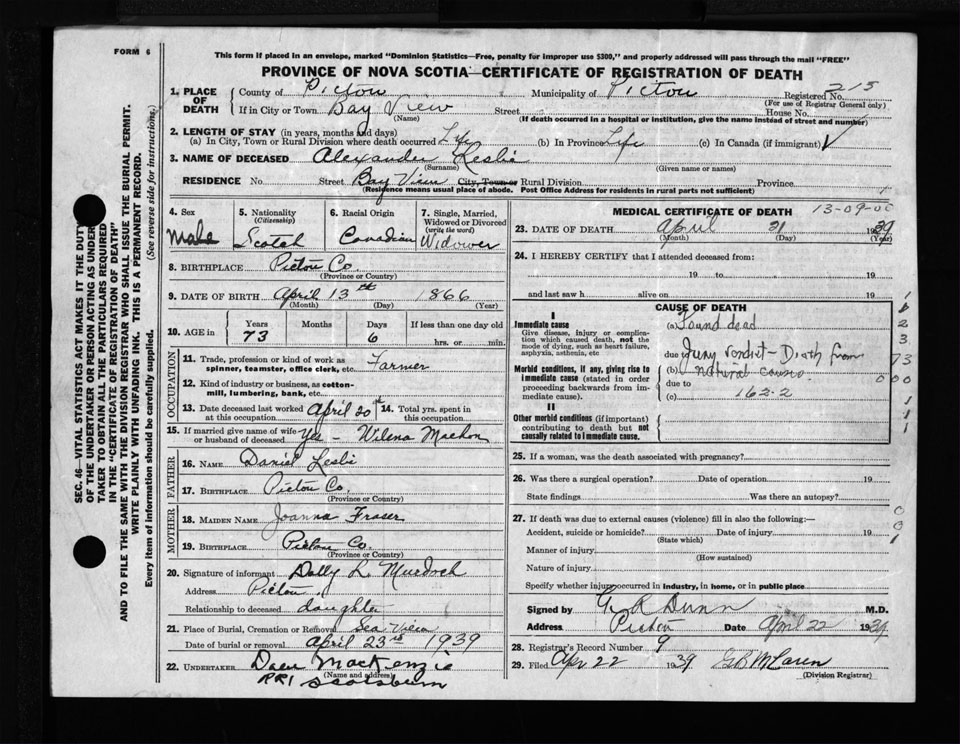 FORM 6
This form if placed in an envelope, marked "Dominion Statistics—Free, penalty for improper use $300," and properly addressed will pass through the mail "FREE"
PROVINCE OF NOVA SCOTIA—CERTIFICATE OF REGISTRATION OF DEATH
1. PLACE OF DEATH
County of Pictou Municipality of Pictou Registered No. 215
(For use of Registrar General only)
If in City or Town Bay View Street House No.
(Name) (If death occurred in a hospital or institution, give the name instead of street and number)
2. LENGTH OF STAY (in years, months and days)
(a) In City, Town or Rural Division where death occurred Life (b) In Province Life (c) In Canada (if immigrant)
3. NAME OF DECEASED Alexander Leslie
(Surname) (Given name or names)
RESIDENCE No. Street Bay View City, Town or Rural Division Province
(Residence means usual place of abode. Post Office Address for residents in rural parts not sufficient)
4. Sex
Male
5. Nationality
(Citizenship)
Scotch
6. Racial Origin
Canadian
7. Single, Married, Widowed or Divorced
(write the word)
Widower
8. BIRTHPLACE Pictou Co.
(Province or Country)
9. DATE OF BIRTH April 13th 1866
(Month) (Day) (Year)
10. AGE in
Years 73
Months
Days 6
If less than one day old
hrs. or min.
OCCUPATION
11. Trade, profession or kind of work as spinner, teamster, office clerk, etc. Farmer
12. Kind of industry or business, as cotton-mill, lumbering, bank, etc.
13. Date deceased last worked at this occupation April 20th
14. Total yrs. spent in this occupation
15. If married give name of wife or husband of deceased Yes -
FATHER
16. NAME Daniel Lesli
17. BIRTHPLACE Pictou Co.
(Province or Country)
MOTHER
18. MAIDEN NAME Joanna Fraser
19. BIRTHPLACE Pictou Co.
(Province or Country)
20. Signature of informant Dolly L. Murdoch
Address Pictou
Relationship to deceased daughter
21. Place of Burial, Cremation or Removal Sea View
Date of burial or removal April 23rd 1939
22. UNDERTAKER MacKenzie
(Name and address)
RR1 Scotsburn
MEDICAL CERTIFICATE OF DEATH
13-09-00
23. DATE OF DEATH April 21 1939
(Month) (Day) (Year)
24. I HEREBY CERTIFY that I attended deceased from:
19 to 19
and last saw h alive on 19
CAUSE OF DEATH
I
Immediate cause
Give disease, injury or complication which caused death, not the mode of dying, such as heart failure, asphyxia, asthenia, etc
(a) Found dead
due Jury verdict - Death from
Morbid conditions, if any, giving rise to immediate cause (stated in order proceeding backwards from immediate cause).
(b) natural causes
due to
(c) 162-2
II
Other morbid conditions (if important) contributing to death but not causally related to immediate cause.
25. If a woman, was the death associated with pregnancy?
26. Was there a surgical operation? Date of operation 19
State findings Was there an autopsy?
27. If death was due to external causes (violence) fill in also the following:—
Accident, suicide or homicide? Date of injury 19
(State which)
Manner of injury
(How sustained)
Nature of injury
Specify whether injury occurred in industry, in home, or in public place
Signed by G R Dunn M.D.
Address Pictou Date April 22 1939
28. Registrar's Record Number 9
29. Filed Apr 22 1939 G B McLaren
(Division Registrar)
SEC. 46—VITAL STATISTICS ACT MAKES IT THE DUTY
OF THE UNDERTAKER OR PERSON ACTING AS UNDERTAKER TO OBTAIN ALL THE PARTICULARS REQUIRED
IN THE "CERTIFICATE OF REGISTRATION OF DEATH"
AND TO FILE THE SAME WITH THE DIVISION REGISTRAR WHO SHALL ISSUE THE BURIAL PERMIT.
WRITE PLAINLY WITH UNFADING INK. THIS IS A PERMANENT RECORD.
Every item of information should be carefully supplied. (See reverse side for instructions)